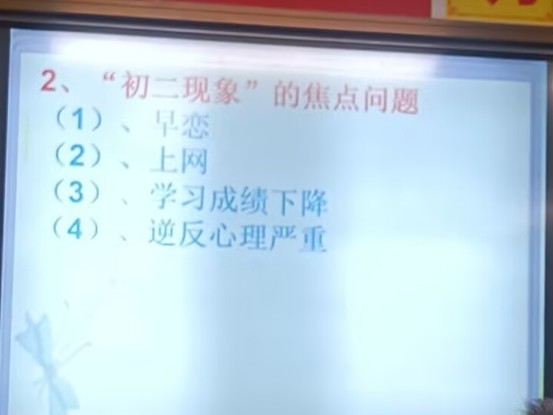 2、“初二现象”的焦点问题
（1）、早恋
（2）、上网
（3）、学习成绩下降
（4）、逆反心理严重